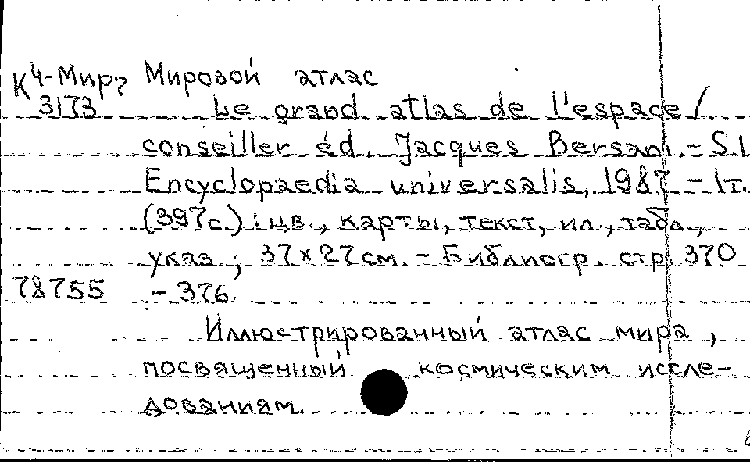 К4-Мир, Мировой атлас
3173 Le grand atlas de l'espace /
conseiller éd. Jacques Bersani. - S.l.
Encyclopaedia universalis, 1987 - 1т.
(397с.) : цв., карты, текст, ил., табл.,
указ ; 37×27см. - Библиогр. стр 370
78755 - 376.
Иллюстрированный атлас мира,
посвященный космическим иссле-
дованиям.